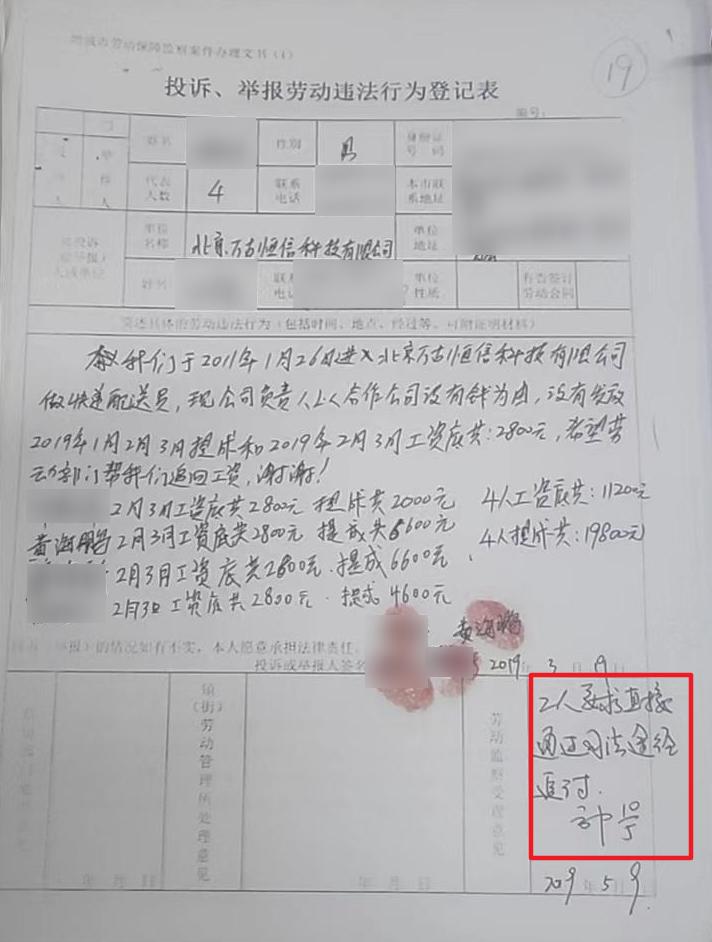 增城市劳动保障监察案件办理文书（1）
19
投诉、举报劳动违法行为登记表
编号：
姓名
性别
男
身份证
号码
代表
人数
4
联系
电话
本市联
系地址
单位
名称
北京万古恒信科技有限公司
单位
地址
姓名
联系
电话
单位
性质
有否签订
劳动合同
简述具体的劳动违法行为（包括时间、地点、经过等，可附证明材料）
我们于2011年1月26日进入北京万古恒信科技有限公司
做快递配送员，现公司负责人以合作公司没有钱为由，没有发放
2019年1月2月3月提成和2019年2月3月工资底共：2800元，希望劳
动部门帮我们追回工资，谢谢！
2月3月工资底共2800元 提成共2000元 4人工资底共：11200元
黄海鹏2月3月工资底共2800元 提成共6600元 4人提成共：19800元
2月3月工资底共2800元．提成6600元
2月3日工资底共2800元．提成4600元
黄海鹏
的情况如有不实，本人愿意承担法律责任。
投诉或举报人签名
2019年3月19日
镇（街）劳动管理所处理意见
劳动监察受理意见
2人要求直接
通过司法途径
追讨．
年 月 日
年 月 日
2019年5月9